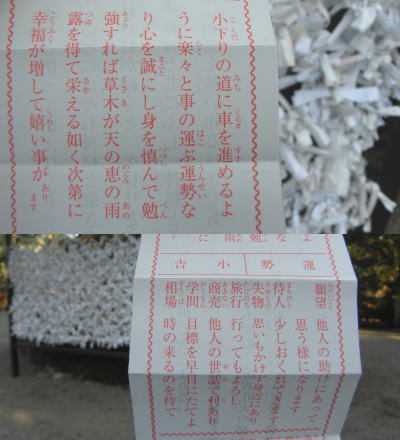 小下りの道に車を進めるよ
うに楽々と事の運ぶ運勢な
り心を誠にし身を慎んで勉
強すれば草木が天の恵の雨
露を得て栄える如く次第に
幸福が増して嬉い事があります
運勢 小吉
願望 他人の助けにあって
思う様になります
待人 少しおくれてきます
失物 思いもかけず身近にあり
旅行 行ってもよろし
商売 他人の世話で利あり
学問 目標を早目にたてよ
相場 時の来るのを待て